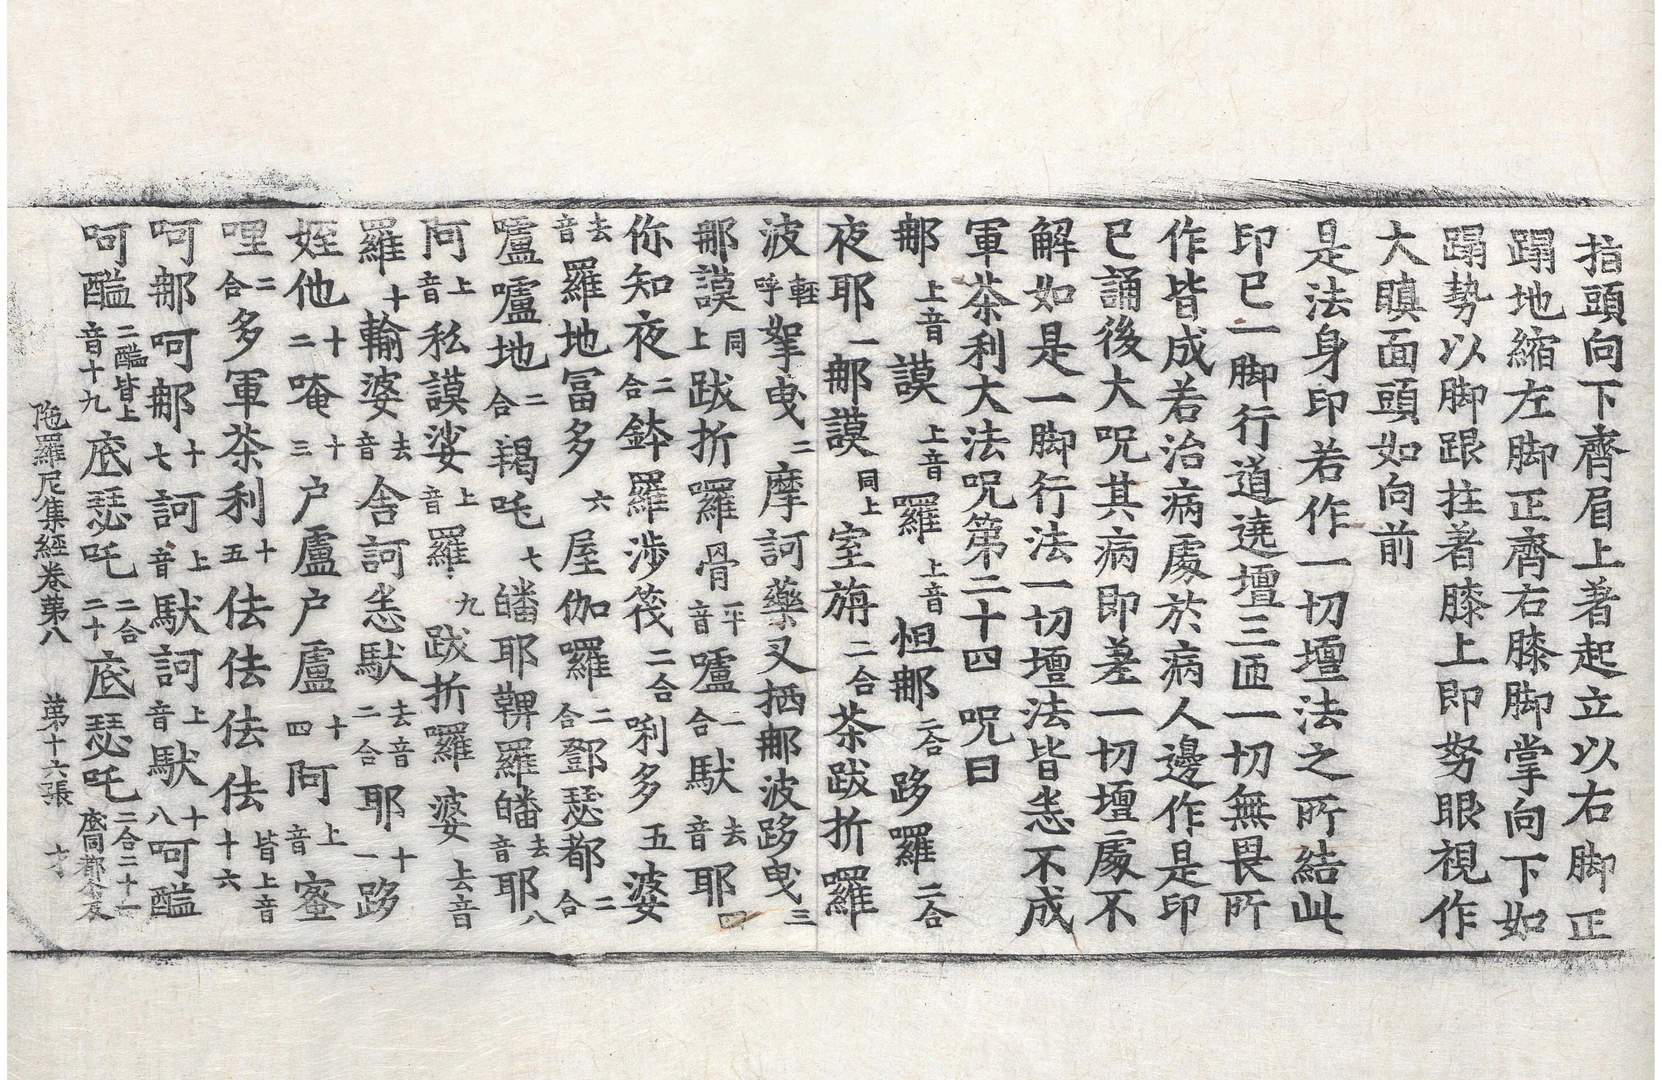 指頭向下齊眉上著起立以右脚正
蹋地縮左脚正齊右膝脚掌向下如
蹋勢以脚跟拄著膝上即努眼視作
大瞋面頭如向前
是法身印若作一切壇法之所結此
印已一脚行道遶壇三匝一切無畏所
作皆成若治病處於病人邊作是印
已誦後大呪其病即差一切壇處不
解如是一脚行法一切壇法皆悉不成
軍茶利大法呪第二十四 呪曰
那上音謨上音羅上音怛那二合跢羅二合
夜耶一那謨同上室旃二合茶跋折羅
波輕呼拏曳二摩訶藥叉栖那波跢曳三
那謨同上跋折囉骨平音嚧二合馱去音耶四
你知夜二合鉢囉涉筏二合唎多五婆
去音羅地冨多六屋伽囉二合鄧瑟都二合
嚧嚧地二合羯吒七皤耶鞞羅皤去音耶八
阿上音私謨娑上音羅九跋折囉婆上去音
羅十輸婆去音舍訶恙馱去音二合耶十一跢
姪他十二唵十三户盧户盧十四阿上音蜜
哩二合多軍茶利十五佉佉佉佉皆上音十六
呵那呵那十七訶上音馱訶上音馱十八呵醯
呵醯二醯皆上音十九底瑟吒二合二十底瑟吒二合二十一底同都令反
陁羅尼集經卷第八 第十六張 才